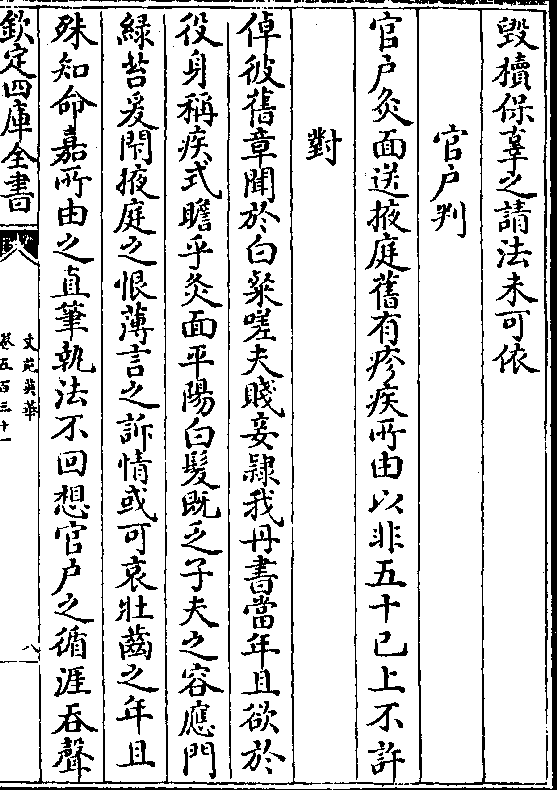 毀攢保辜之請法未可依
官户判
官户灸面送掖庭舊有疹疾所由以非五十已上不許
對
倬彼舊章聞於白粲嗟夫賤妾隷我丹書當年且欲於
役身稱疾式瞻乎灸面平陽白髮既乏子夫之容應門
緑苔爰閇掖庭之恨薄言之訴情或可哀壯齒之年且
殊知命嘉所由之直筆執法不回想官户之循涯吞聲
欽定四庫全書
文苑英華
卷五百三十一
八